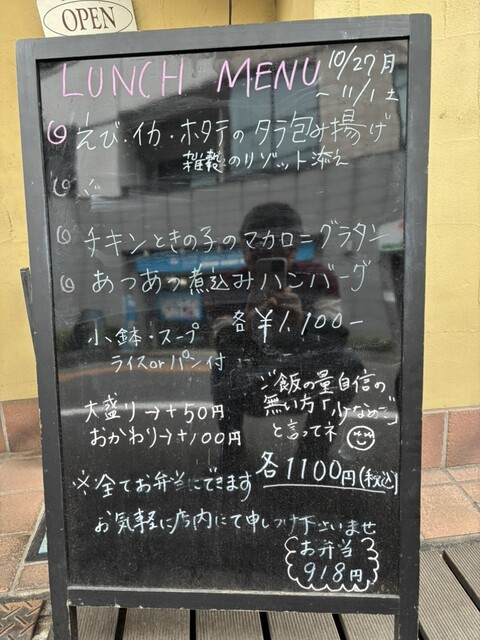 OPEN
LUNCH MENU
10/27月
~11/1土
えび・イカ・ホタテのタラ包み揚げ
雑穀のリゾット添え
チキンときの子のマカロニグラタン
あつあつ煮込みハンバーグ
各¥1,100-
小鉢・スープ
ライスorパン付
ご飯の量自信の
無い方「少なめで」
と言ってネ
大盛り→+50円
おかわり→+100円
各1100円(税込)
※全てお弁当にできます
お気軽に店内にて申しつけ下さいませ
お弁当
918円